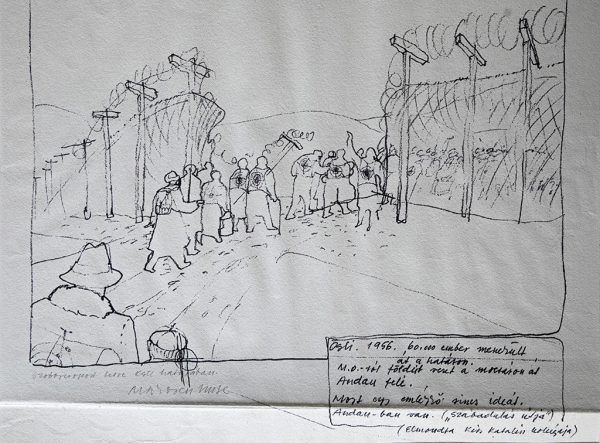 1956. 60.000 ember menekült
át a határon.
M.O.-ról földút vezet a mocsáron át
Andau felé.
Most egy emlékmű sincs ideát.
Andau-ban van. („Szabadulás útja”)
(Elmondta Kiss Katalin